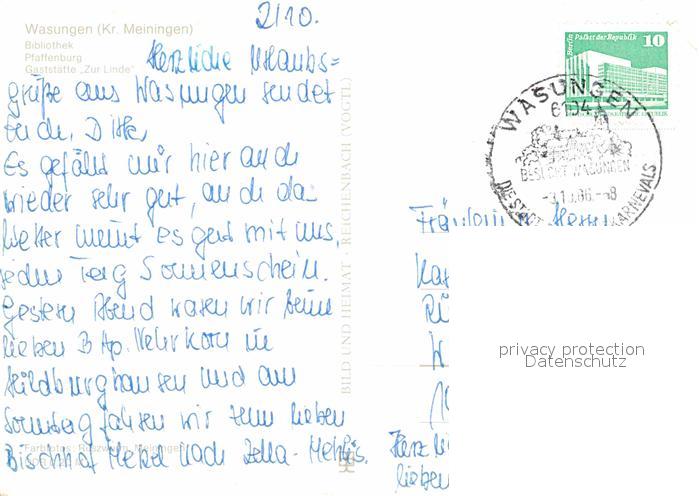 2/10.
Wasungen (Kr. Meiningen)
Bibliothek
Pfaffenburg
Gaststätte „Zur Linde"
Herzliche Urlaubs=
grüße aus Wasungen sendet
Euch,
Es gefällt mir hier auch
wieder sehr gut, auch das
Wetter meint es gut mit uns,
jeden Tag Sonnenschein.
Gestern Abend waren wir beim
lieben Ap. Wehrkorn in
Hildburghausen und am
Sonntag fahren wir zum lieben
Bischhof nach Zella-Mehlis.
Farbfotos: Meiningen
BILD UND HEIMAT · REICHENBACH (VOGTL)
Berlin Palast der Republik 10
WASUNGEN
6104
BESUCHT WASUNGEN
-3.10.86.-8
DIE STADT KARNEVALS
Fräulein
W
lieben
privacy protection
Datenschutz